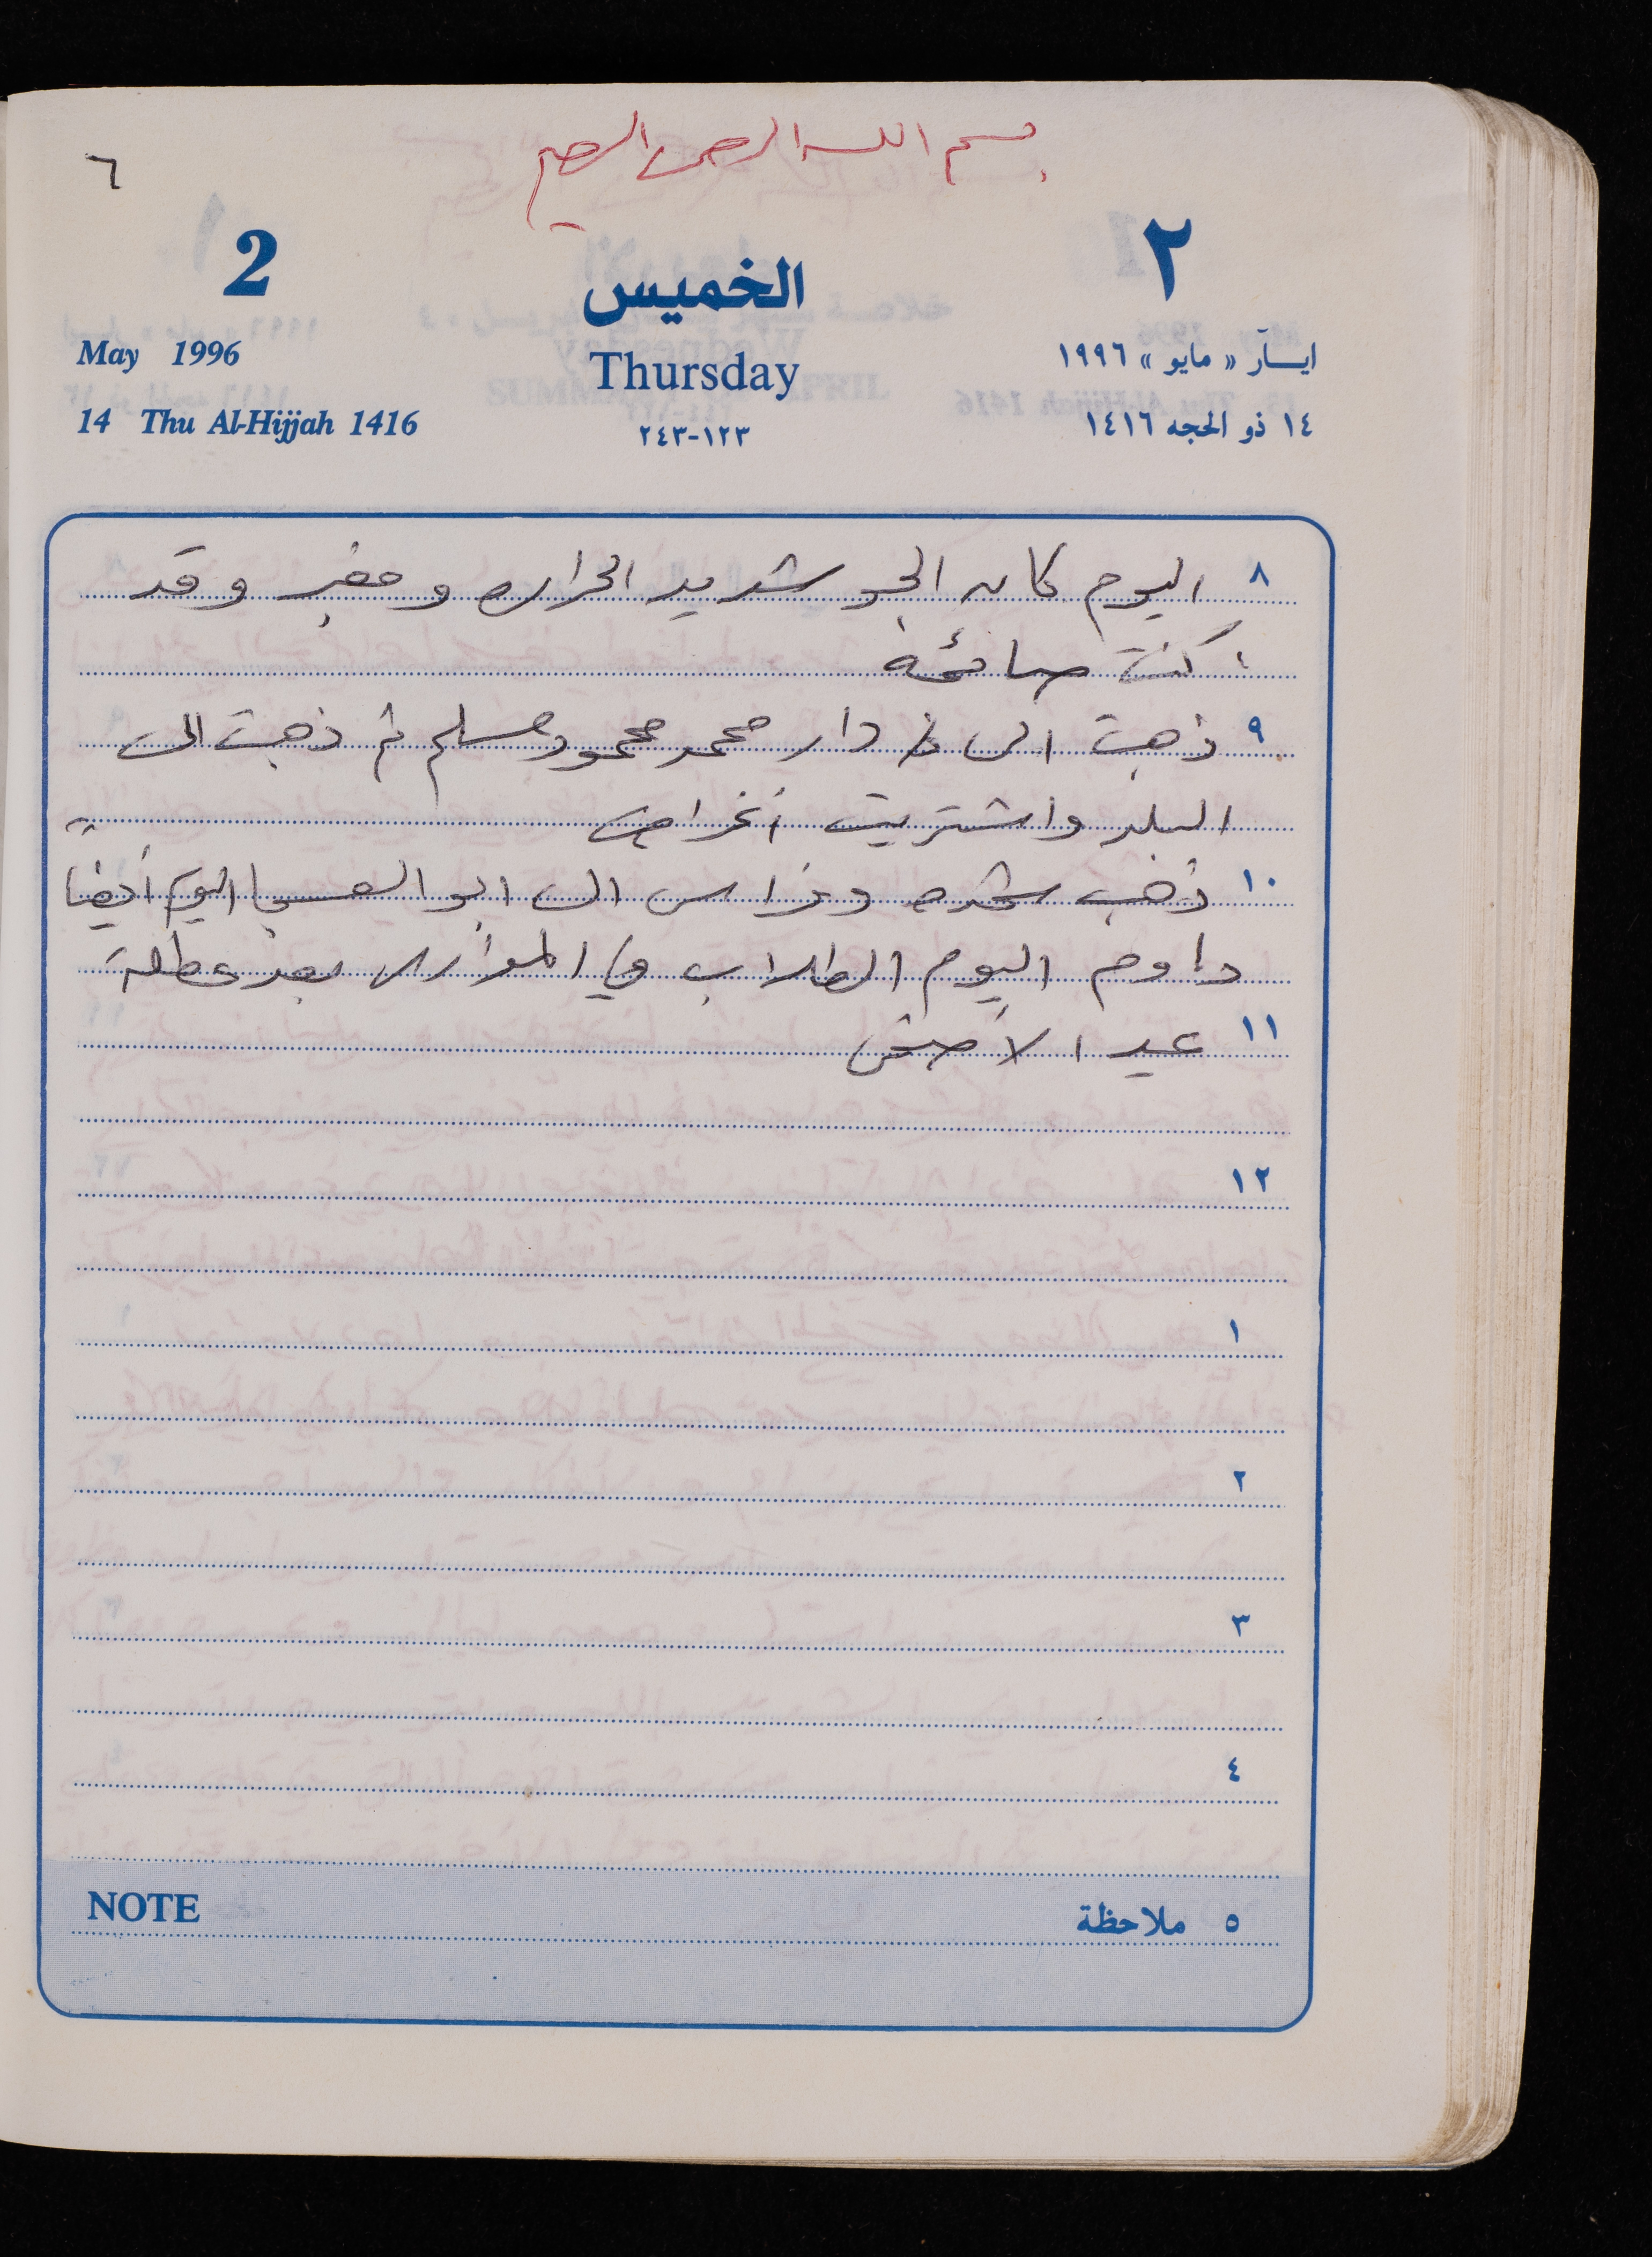 بسم الله الرحمن الرحيم
٦
2
الخميس
٢
May 1996
Thursday
ايـــار « مايو » ١٩٩٦
14 Thu Al-Hijjah 1416
١٢٣-٢٤٣
١٤ ذو الحجه ١٤١٦
٨ اليوم كان الجو شديد الحراره ومغبر وقد
كنت صائمه
٩ ذهبت الى دار محمد محمود مسلم ثم ذهبت الى
البلد واشتريت اغراض
١٠ ذهب وفراس الى ابو العسجا اليوم أيضاً
داوم اليوم الطلاب في المدارس بعد عطلة
١١ عيد الاضحى
١٢
١
٢
٣
٤
NOTE
٥ ملاحظة